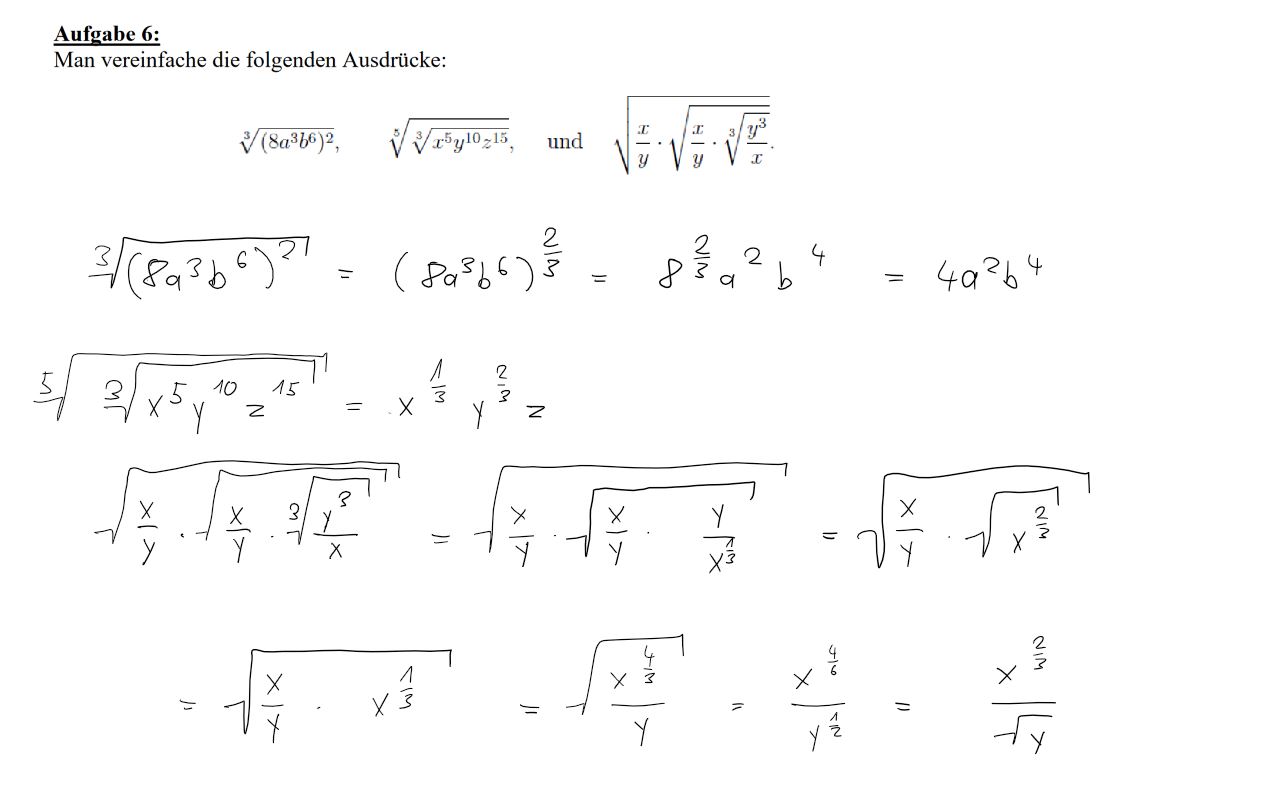 Aufgabe 6:
Man vereinfache die folgenden Ausdrücke:
∛((8a³b⁶)²), ⁵√(∛(x⁵y¹⁰z¹⁵)), und √(x/y · √(x/y · ∛(y³/x))).
∛((8a³b⁶)²) = (8a³b⁶)^(2/3) = 8^(2/3) a² b⁴ = 4a²b⁴
⁵√(∛(x⁵y¹⁰z¹⁵)) = x^(1/3) y^(2/3) z
√(x/y · √(x/y · ∛(y³/x))) = √(x/y · √(x/y · y/x^(1/3))) = √(x/y · √(x^(2/3)))
= √(x/y · x^(1/3)) = √(x^(4/3)/y) = x^(4/6)/y^(1/2) = x^(2/3)/√y